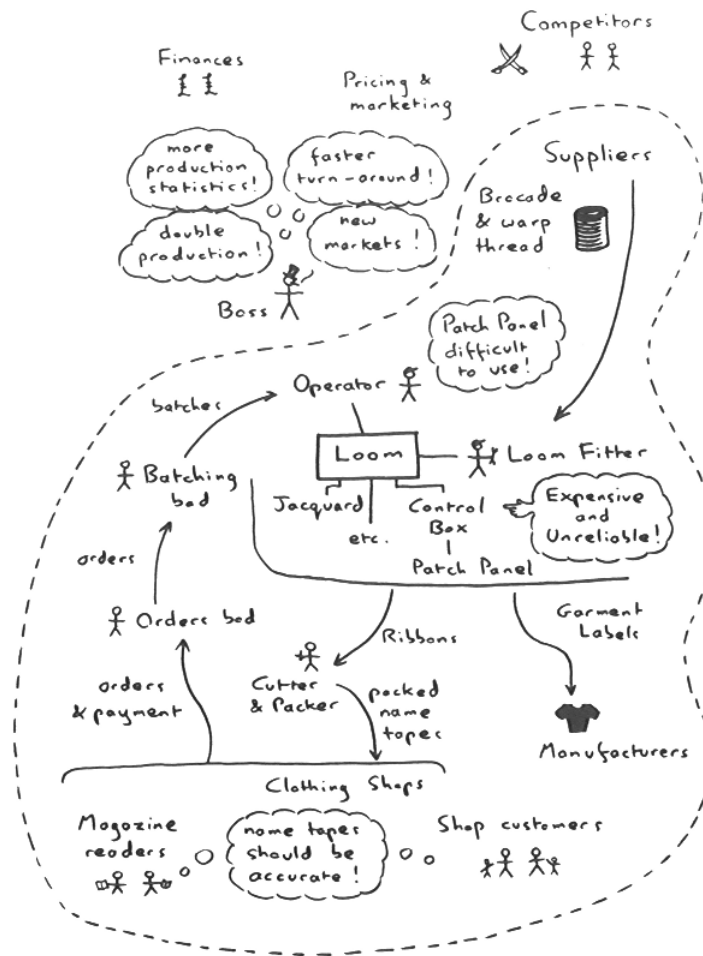 Competitors
Finances
Pricing &
marketing
more
production
statistics!
faster
turn-around!
double
production!
new
markets!
Boss
Suppliers
Brocade
& warp
thread
Patch Panel
difficult
to use!
Operator
batches
Loom
Loom Fitter
Batching
bod
Jacquard
etc.
Control
Box
Patch Panel
Expensive
and
Unreliable!
orders
Orders bod
Ribbons
Garment
Labels
orders
& payment
Cutter
& Packer
packed
name
tapes
Manufacturers
Clothing Shops
Magazine
readers
name tapes
should be
accurate!
Shop customers